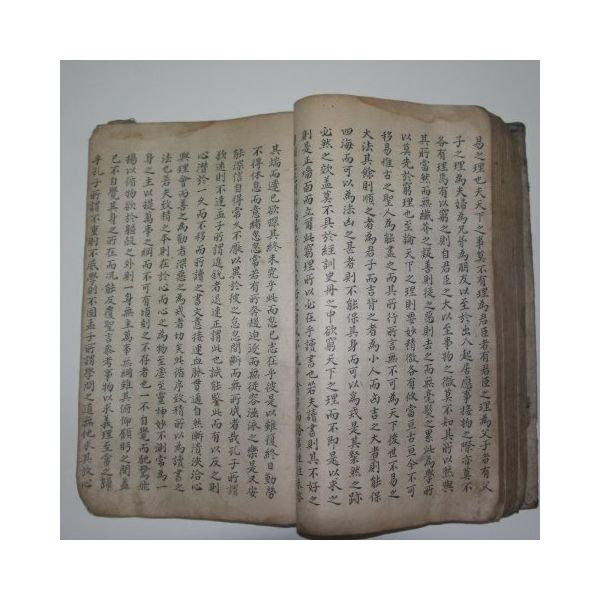 易之理也夫天下之事莫不有理為君臣者有君臣之理為父子者有父
子之理為夫婦為兄弟為朋友以至於出入起居應事接物之際亦莫不
各有理焉有以窮之則自君臣之大以至事物之微莫不知其所以然與
其所當然而無纖芥之疑善則從之惡則去之而無毫髮之累此為學所
以莫先於窮理也至論天下之理則要妙精微各有攸當亘古亘今不可
移易惟古之聖人為能盡之而其所行所言無不可為天下後世不易之
大法其餘則順之者為君子而吉背之者為小人而凶吉之大者則能保
四海而可以為法凶之甚者則不能保其身而可以為戒是其粲然之跡
必然之效盖莫不具於經訓史冊之中欲窮天下之理而不即是以求之
則是正墻面而立爾此窮理所以必在乎讀書也若夫讀書則其不好之
其端而遽已欲探其終未究乎此而忽已志在乎彼是以雖復終日勤勞
不得休息而意緒怱怱常若有所奔趨迫逐而無從容涵泳之樂是又安
能深信自得常久不厭以異於彼之怠忽間斷而無所成者哉孔子所謂
欲速則不達孟子所謂進銳者退速正謂此也誠能鑒此而有以反之則
心潛於一久而不移而所讀之書文意接連血脉貫通自然漸漬浹洽心
與理會而善之為勸者深惡之為戒者切矣此循序致精所以為讀書之
法也若夫致精之本則在於心而心之為物至虛至靈神妙不測常為一
身之主以提萬事之綱而不可有頃刻之不存者也一不自覺而馳騖飛
揚以徇物欲於軀殼之外則一身無主萬事無綱雖其俯仰顧眄之間盖
已不自覺其身之所在而况能反覆聖言參考事物以求義理至當之歸
乎孔子所謂不重則不威學則不固孟子所謂學問之道無他求其放心